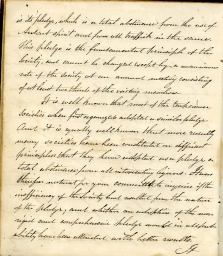 is its pledge, which is a total abstinence from the use of
Ardent spirit and from all traffick in the same.
This pledge is the fundamental principle of the
Society, and cannot be changed except by a unanimous
vote of the Society at an annual meeting consisting
of at least two thirds of the visiting members.
It is well known that most of the temperance
Societies when first organized adopted a similar pledge.
And it is equally well known that more recently
many societies have been constituted on different
principles; that they have adopted as a pledge a
total abstinence from all intoxicating liquors. Hence
therefore natural for your committee to inquire if the
inefficiency of this Society has resulted from the nature
of the pledge; and whether an adoption of the more
rigid and comprehensive pledge would in all prob-
ability have been attended with better results.